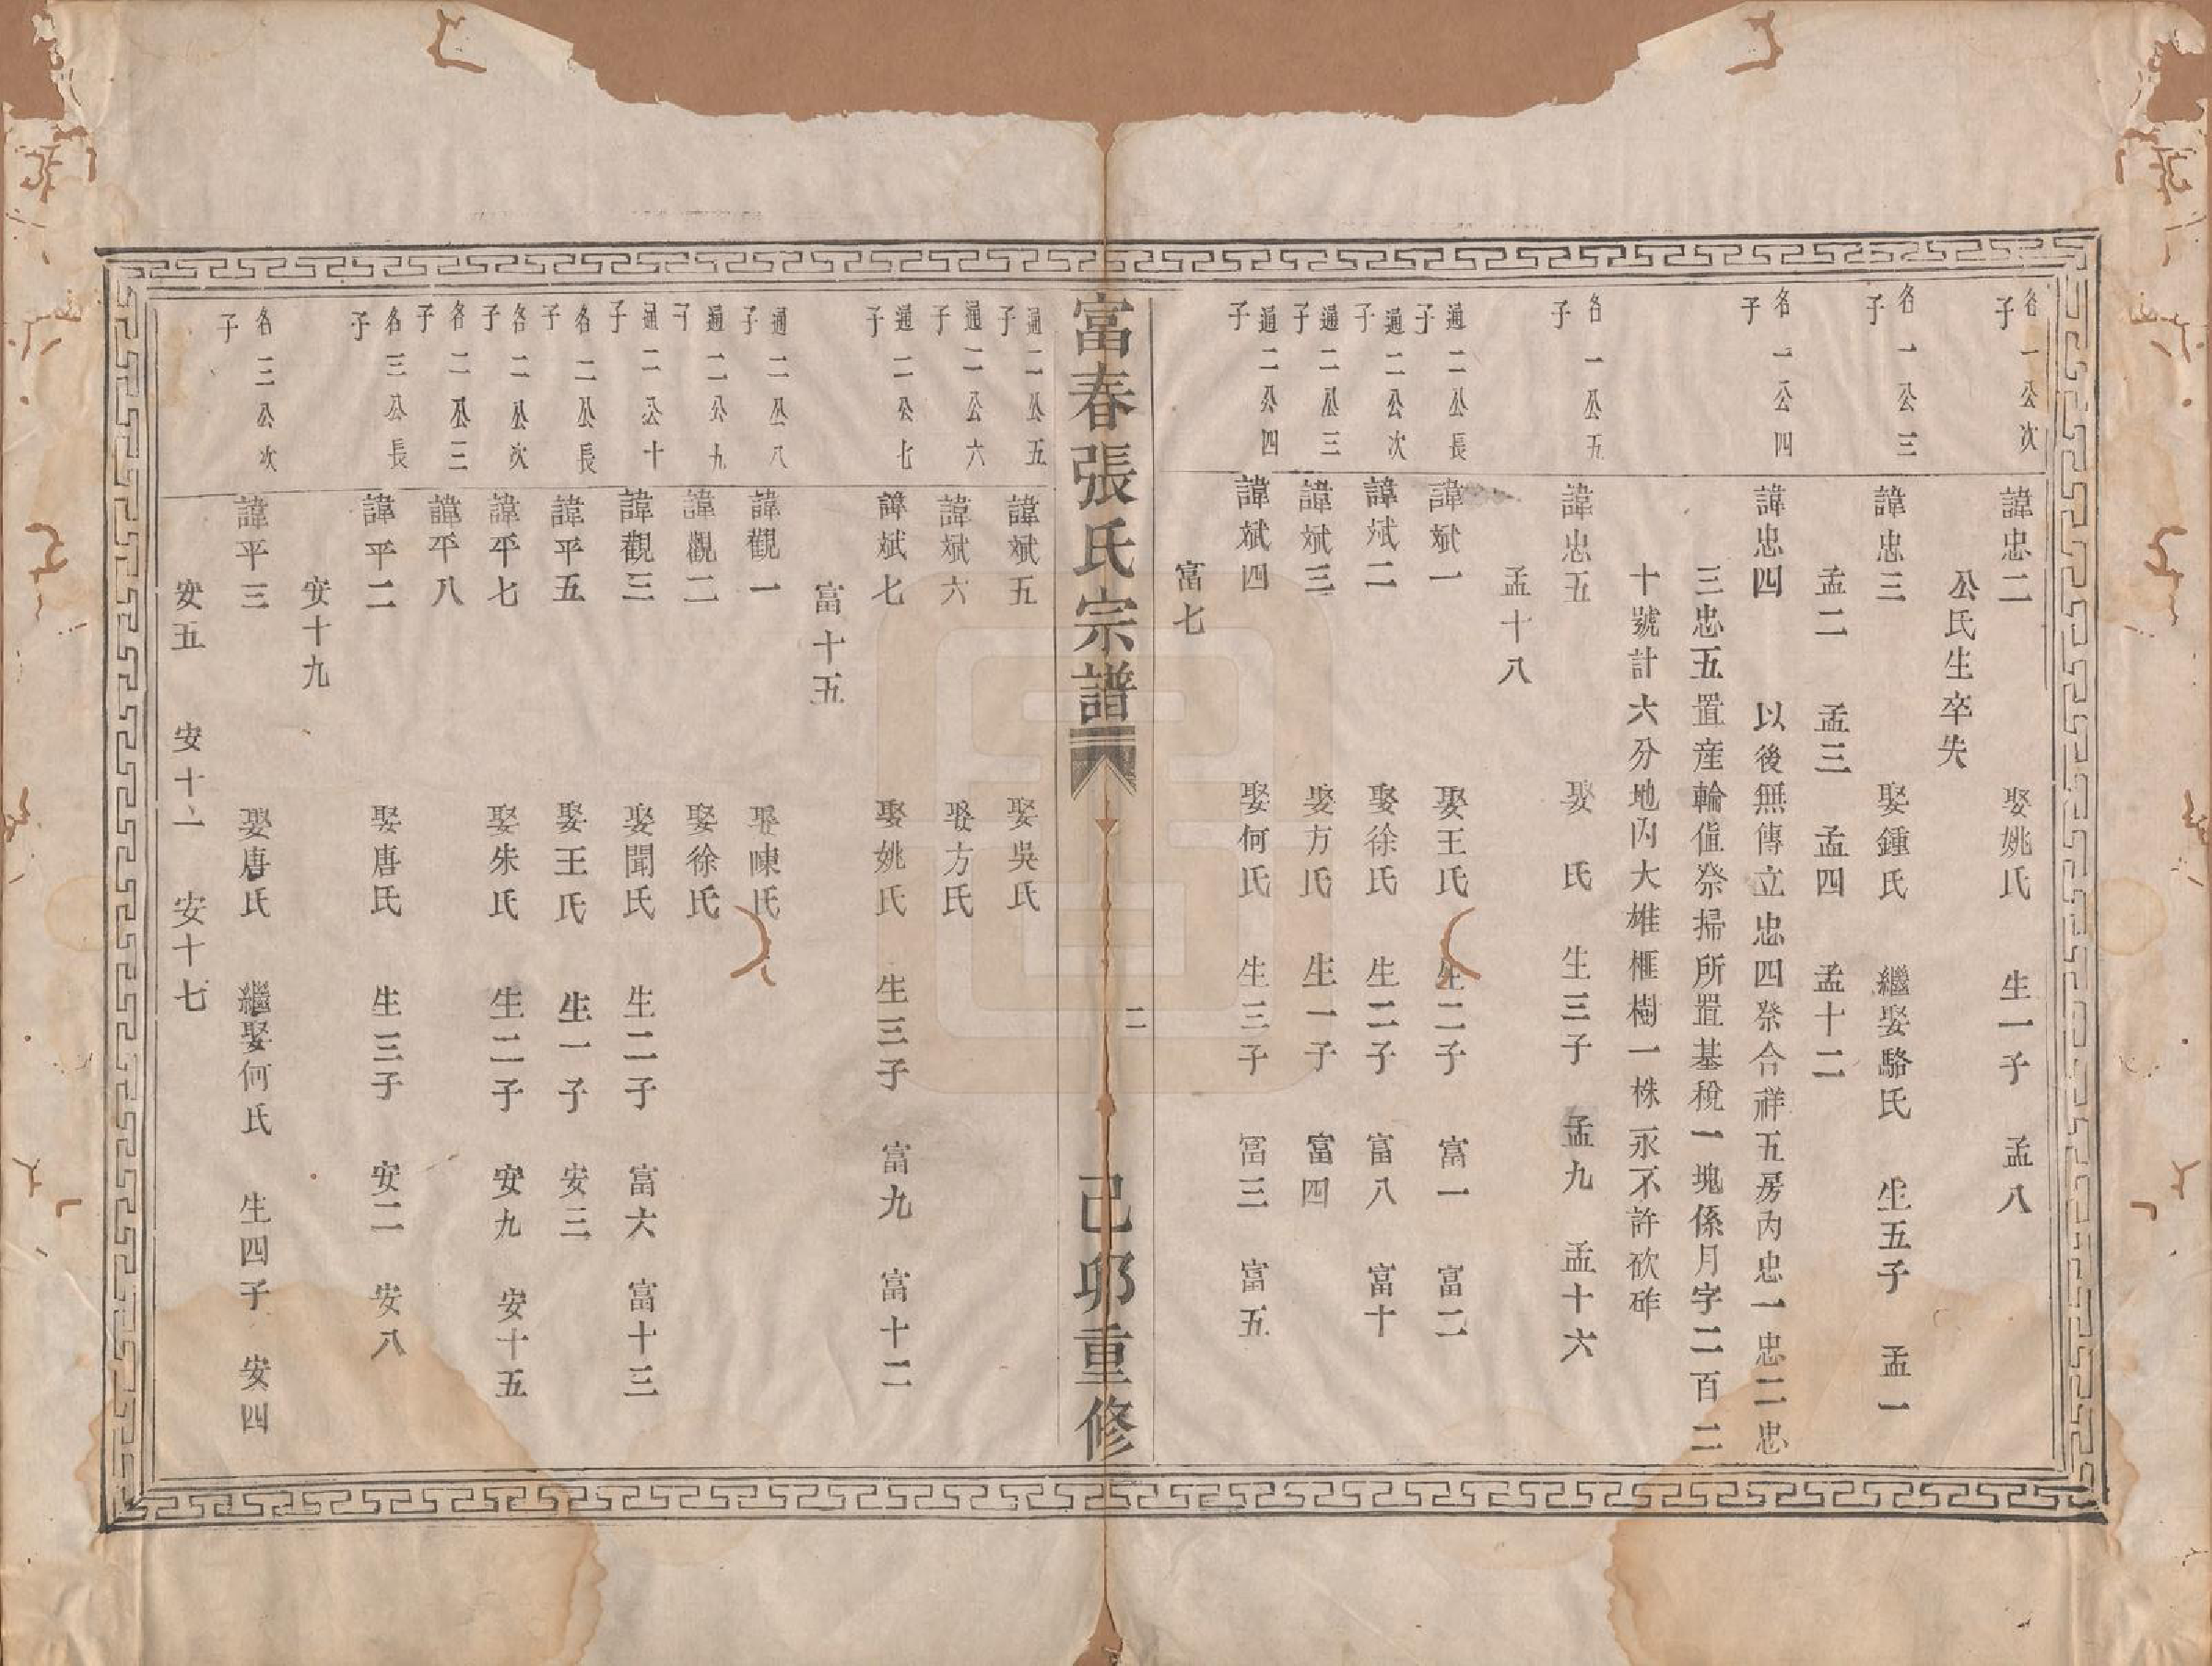 各一公次子　諱忠二　娶姚氏　生一子　孟八
公氏生卒失
各一公三子　諱忠三　娶鍾氏　繼娶駱氏　生五子　孟一
孟二　孟三　孟四　孟十二
各一公四子　諱忠四　以後無傳立忠四祭合祥五房內忠一忠二忠
三忠五置産輪值祭掃所置基稅一塊係月字二百二
十號計六分地內大雄榧樹一株永不許砍砟
各一公五子　諱忠五　娶　氏　生三子　孟九　孟十六
孟十八
通二公長子　諱斌一　娶王氏　生二子　富一　富二
通二公次子　諱斌二　娶徐氏　生二子　富八　富十
通二公三子　諱斌三　娶方氏　生一子　富四
通二公四子　諱斌四　娶何氏　生三子　富三　富五
富七
富春張氏宗譜　二　己卯重修
通二公五子　諱斌五　娶吳氏
通二公六子　諱斌六　娶方氏
通二公七子　諱斌七　娶姚氏　生三子　富九　富十二
富十五
通二公八子　諱觀一　娶陳氏
通二公九子　諱觀二　娶徐氏
通二公十子　諱觀三　娶聞氏　生二子　富六　富十三
各二公長子　諱平五　娶王氏　生一子　安三
各二公次子　諱平七　娶朱氏　生二子　安九　安十五
各二公三子　諱平八
各三公長子　諱平二　娶唐氏　生三子　安二　安八
安十九
各三公次子　諱平三　娶唐氏　繼娶何氏　生四子　安四
安五　安十一　安十七